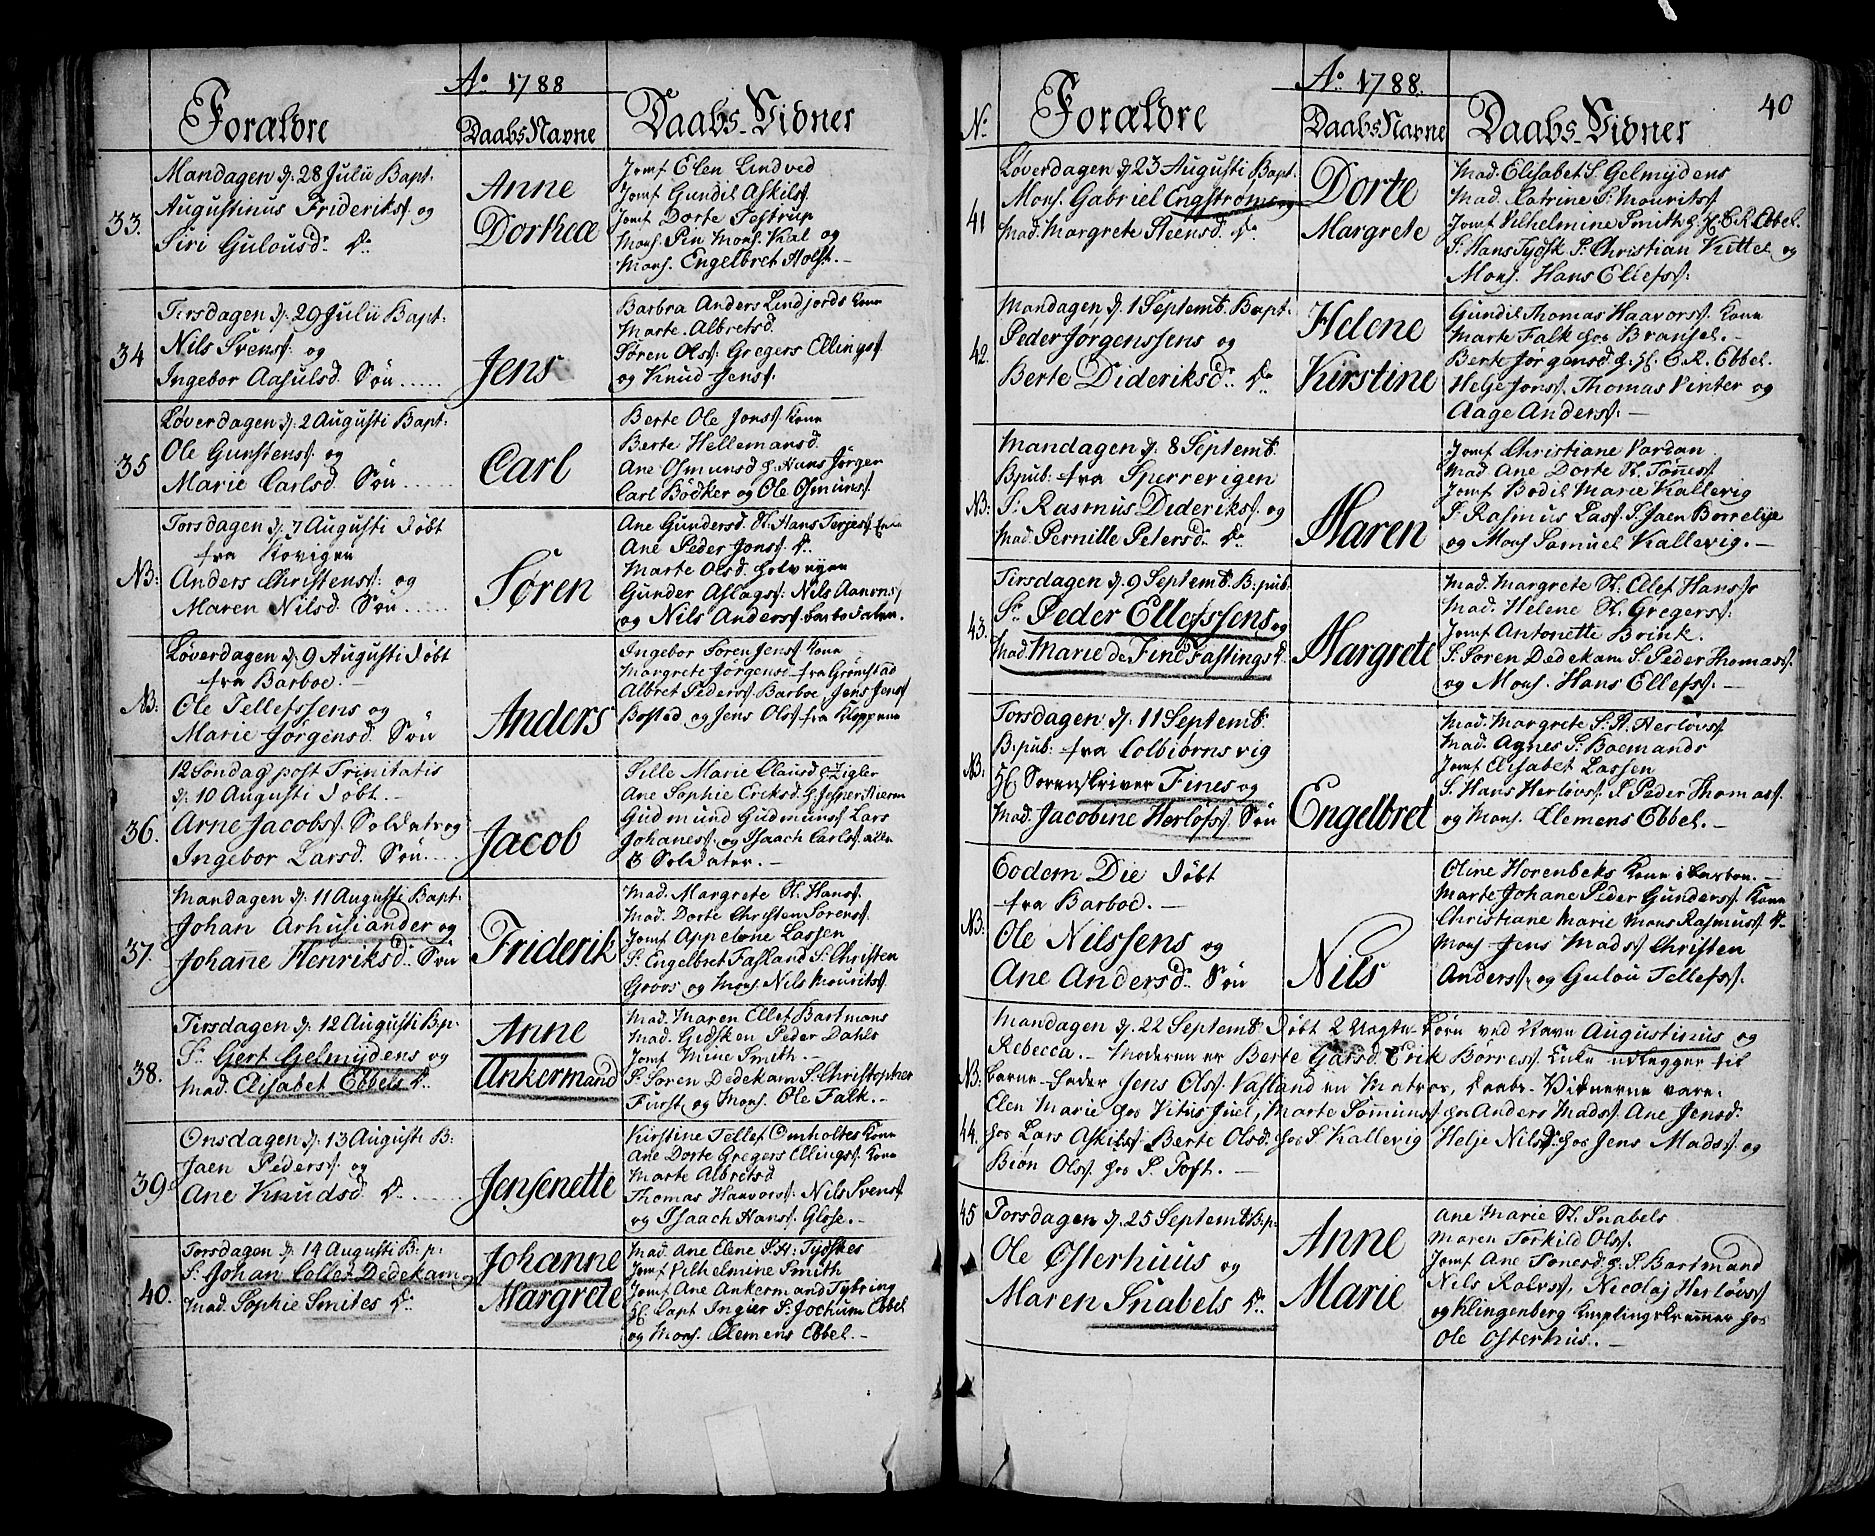 Ao 1788
Forældre
Daabs Navne
Daabs-Vidner
33.
Mandagen d. 28 Julii Bapt.
Augustinus Frideriks. og
Siri Gulousd. Do
Anne
Dorthea
Jomf Elen Lindved
Jomf Gundil Askils.
Jomf Dorte Testrup
Mons. Pin Mons. Kal og
Mons. Engelbret Holst.-
34
Tirsdagen d. 29 Julii Bapt.
Nils Svens. og
Ingebor Aasulsd. Søn ......
Jens
Barbra Anders Lindjords Kone
Marte Albretsd.
Søren Ols. Gregers Ellings.
og Knud Jens.
35
Løverdagen d. 2 Augusti Bapt.
Ole Gunstens. og
Marie Carlsd. Søn ......
Carl
Berte Ole Jons. Kone
Berte Hellemansd.
Ane Osmunsd. h. Hans Jörger
Carl Bödker og Ole Osmuns.
NB:
Torsdagen d. 7 Augusti Døbt
fra Kovigen
Anders Christens. og
Maren Nilsd. Søn ......
Søren
Ane Gundersd. H. Hans Terjes.
Ane Peder Jons. D.
Marte Olsd.
Gunder Aslags. Nils Aanons,
og Nils Anders.
NB.
Løverdagen d. 9 Augusti Døbt
fra Barboe.-
Ole Tellefssens og
Marie Jørgensd. Søn
Anders
Ingebor Sørensens Kone
Margrete Jørgens. fra Grømstad
Albret Peders. Barboe, Jens Jens.
Bosted og Jens Ols. fra Kloppene
36
12 Søndag post Trinitatis
d. 10 Augusti Døbt.-
Arne Jacobs. Soldat og
Ingebor Larsd. Søn......
Jacob
Sille Marie Clausd. h. Zigler
Ane Sophie Eriksd. h. Jesper
Gudmund Gudmuns. Lars
Johanes. og Isaach Carls. alle
3 Soldater.-
37.
Mandagen d. 11 Augusti Bapt.
Johan Arhusiander og
Johane Henriksd. Søn
Friderik
Mad. Margrete H. Hans.
Mad. Dorte Christen Sørens.
Jomf Appelone Lassen
S. Engelbret Fasland S. Christen
Groos og Mons. Nils Mourits.
38.
Tirsdagen d. 12 Augusti B.p.
S. Gert Gelmydens og
Mad. Elisabet Ebbels D.
Anne
Ankermand
Mad. Maren Ellef Bartmans
Mad. Gidsken Peder Dahls
Jomf Mine Smith.-
S. Søren Dedekam S. Christopher
Furst og Mons. Ole Falk.-
39.
Onsdagen d. 13 Augusti B:
Jaen Peders. og
Ane Knudsd. D. ......
Jensenette
Kirstine Tellef Omholtes Kone
Ane Dorte Gregers Ellings. Kone
Marte Albretsd
Thomas Haavors. Nils Svens.
og Isaach Hans. Glose.-
40.
Torsdagen d. 14 Augusti B.p:
S. Johan Collet Dedekam og
Mad. Sophie Smites D.
Johanne
Margrete
Mad. Ane Elene S. H: Tydskes
Jomf Vilhelmine Smith
Jomf Ane Ankermand Tybring
H. Capt Ingier S. Jochum Ebbel
og Mons. Clemens Ebbel.-
Ao 1788.
40
No
Forældre
Daabs Navne
Daabs-Vidner
41
Løverdagen d. 23 Augusti Bapt.
Mons. Gabriel Engstrøms og
Mad. Margrete Steensd. Do
Dorte
Margrete
Mad. Elisabet S. Gelmydens
Mad. Catrine S. Mourits.
Jomf Vilhelmine Smith h. H. E. R. Ebbel.
S. Hans Tydsk S. Christian Kittel og
Mons. Hans Ellefs.
42.
Mandagen d. 1 Septemb. Bapt.
Peder Jörgenssens og
Berte Dideriksd. Do
Helene
Kirstine
Gundil Thomas Haavors. Kone
Marte Falk hos Bransel.-
Berte Jörgensd. h. H. E. R. Ebbel.
Helje Jons. Thomas Venter og
Aage Anders.-
NB:
Mandagen d. 8 Septemb.
B.pub. fra Sperrevigen
S. Rasmus Dideriks. og
Mad. Pernille Petersd. Do
Maren
Jomf Christiane Vordan
Mad Ane Dorte H. Tønes.
Jomf Bodil Marie Kallevig
S. Rasmus Las. S. Jaen Borrelije
og Mons Samuel Kallevig.-
43.
Tirsdagen d. 9 Septemb. B.pub.
Sr. Peder Ellefssens og
Mad. Marie de Fine Fastings D.
Margrete
Mad. Margrete H. Olef Hans.
Mad. Helene H. Gregers.
Jomf Antonette Brink.
S. Søren Dedekam S. Peder Thomas.
og Mons. Hans Ellefs.-
NB.
Torsdagen d. 11 Septemb.
B.pub. fra Colbiørnsvig
H. Sorenskriver Fines og
Mad. Jacobine Herlofs. Søn
Engelbret
Mad. Margrete S. A. Herløvs.
Mad. Agnes S. Boemands
Jomf Elisabet Lassen
S. Hans Herløvs. S. Peder Thomas.
og Mons. Clemens Ebbel.-
NB:
Eodem Die Døbt
fra Barboe.-
Ole Nilssens og
Ane Andersd. Søn
Nils
Oline Horenbeks Kone i Barboe.-
Marte Johane Peder Gunders. Kone
Christiane Marie Mons Rasmus. D.
Mons Jens Mads. Christen
Anders. og Gulou Tellefs.
NB.
44.
Mandagen d. 22 Septemb. Døbt 2 Uægte Børn ved Navn Augustinus og
Rebecca.- Moderen er Berte Garsd. Erik Børres. Enke udlegger til
Barne-Fader Jens Ols. Vasland en Matros, Daabs-Vidnerne vare:
Elen Marie hos Vitus Juel, Marte Somuns. hos Anders Mads. Ane Jensd.
hos Lars Askils. Berte Olsd. hos S. Kallevig Helje Nilsd. hos Jens Mads. og
Biøn Ols. hos P. Toft.-
45
Torsdagen d. 25 Septemb. B.p.
Ole Osterhuus og
Maren Snabels D.
Anne
Marie
Ane Marie H. Snabels
Maren Torkild Ols.
Jomf Ane Tonesd. h. S. Bartmand
Nils Ralvs. Nicolaj Herløvs.
og Klingenberg hos
Ole Osterhus.-